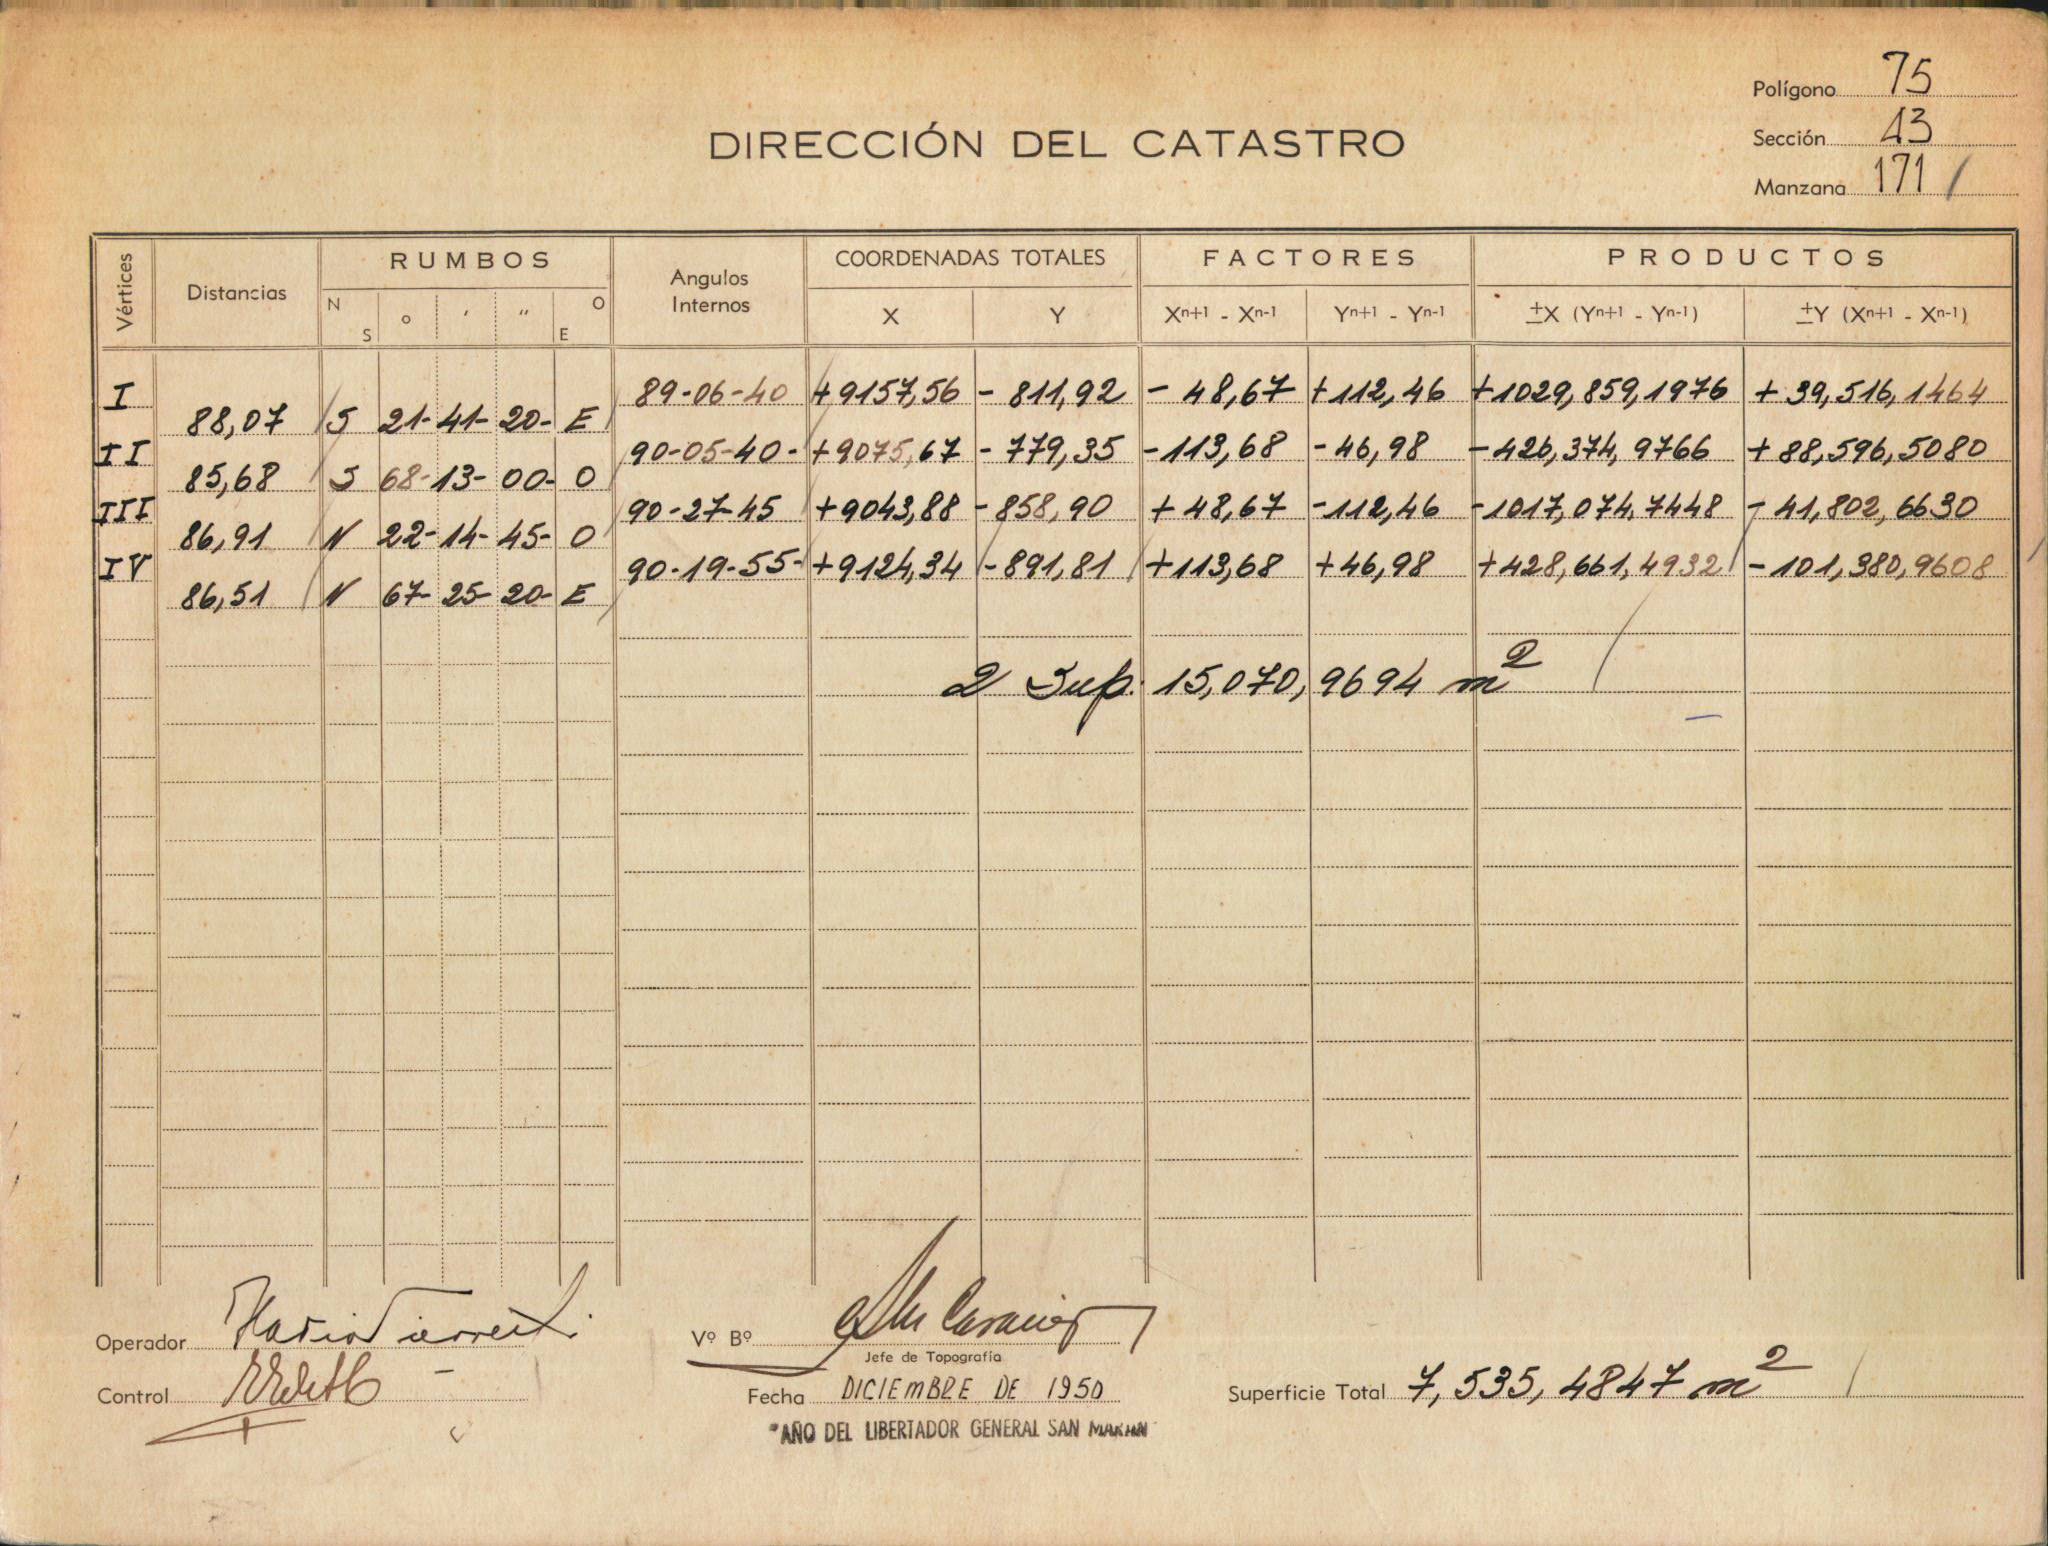 Polígono 75
DIRECCIÓN DEL CATASTRO
Sección 43
Manzana 171 /
Vértices Distancias RUMBOS Angulos Internos COORDENADAS TOTALES FACTORES PRODUCTOS
N S ° ' " O E X Y Xn+1 - Xn-1 Yn+1 - Yn-1 ±X (Yn+1 - Yn-1) ±Y (Xn+1 - Xn-1)
I 89-06-40 +9157,56 - 811,92 - 48,67 +112,46 +1029,859,1976 + 39,516,1464
88,07 S 21-41-20- E
II 90-05-40- +9075,67 - 779,35 -113,68 -46,98 -426,374,9766 + 88,596,5080
85,68 S 68-13-00- O
III 90-27-45 +9043,88 -858,90 + 48,67 -112,46 -1017,074,7448 - 41,802,6630
86,91 N 22-14-45- O
IV 90-19-55- +9124,34 -891,81 +113,68 +46,98 +428,661,4932 -101,380,9608
86,51 N 67-25-20- E
2 Sup. 15,070,9694 m²
Operador
Vº Bº
Jefe de Topografía
Control
Fecha DICIEMBRE DE 1950
Superficie Total 7,535,4847 m²
"AÑO DEL LIBERTADOR GENERAL SAN MARTIN